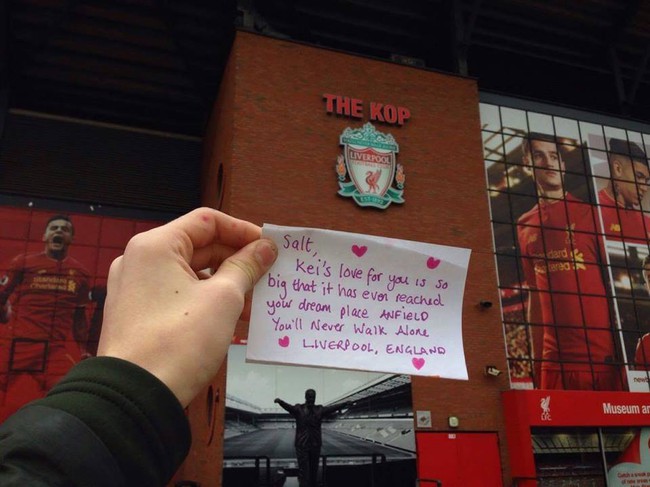 THE KOP
LIVERPOOL
Salt,
Kei's love for you is so
big that it has even reached
your dream place ANFIELD
You'll Never Walk Alone
LIVERPOOL, ENGLAND
Standard
Chartered
LFC
Museum an